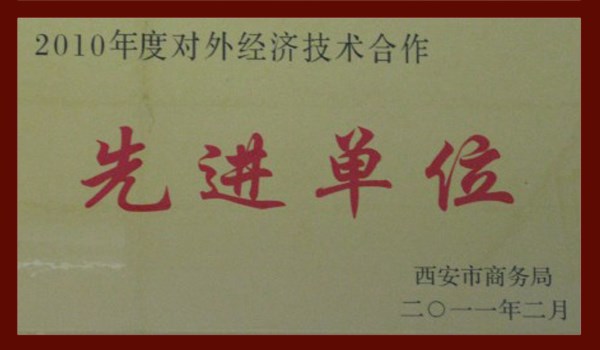 2010年度对外经济技术合作
先进单位
西安市商务局
二〇一一年二月